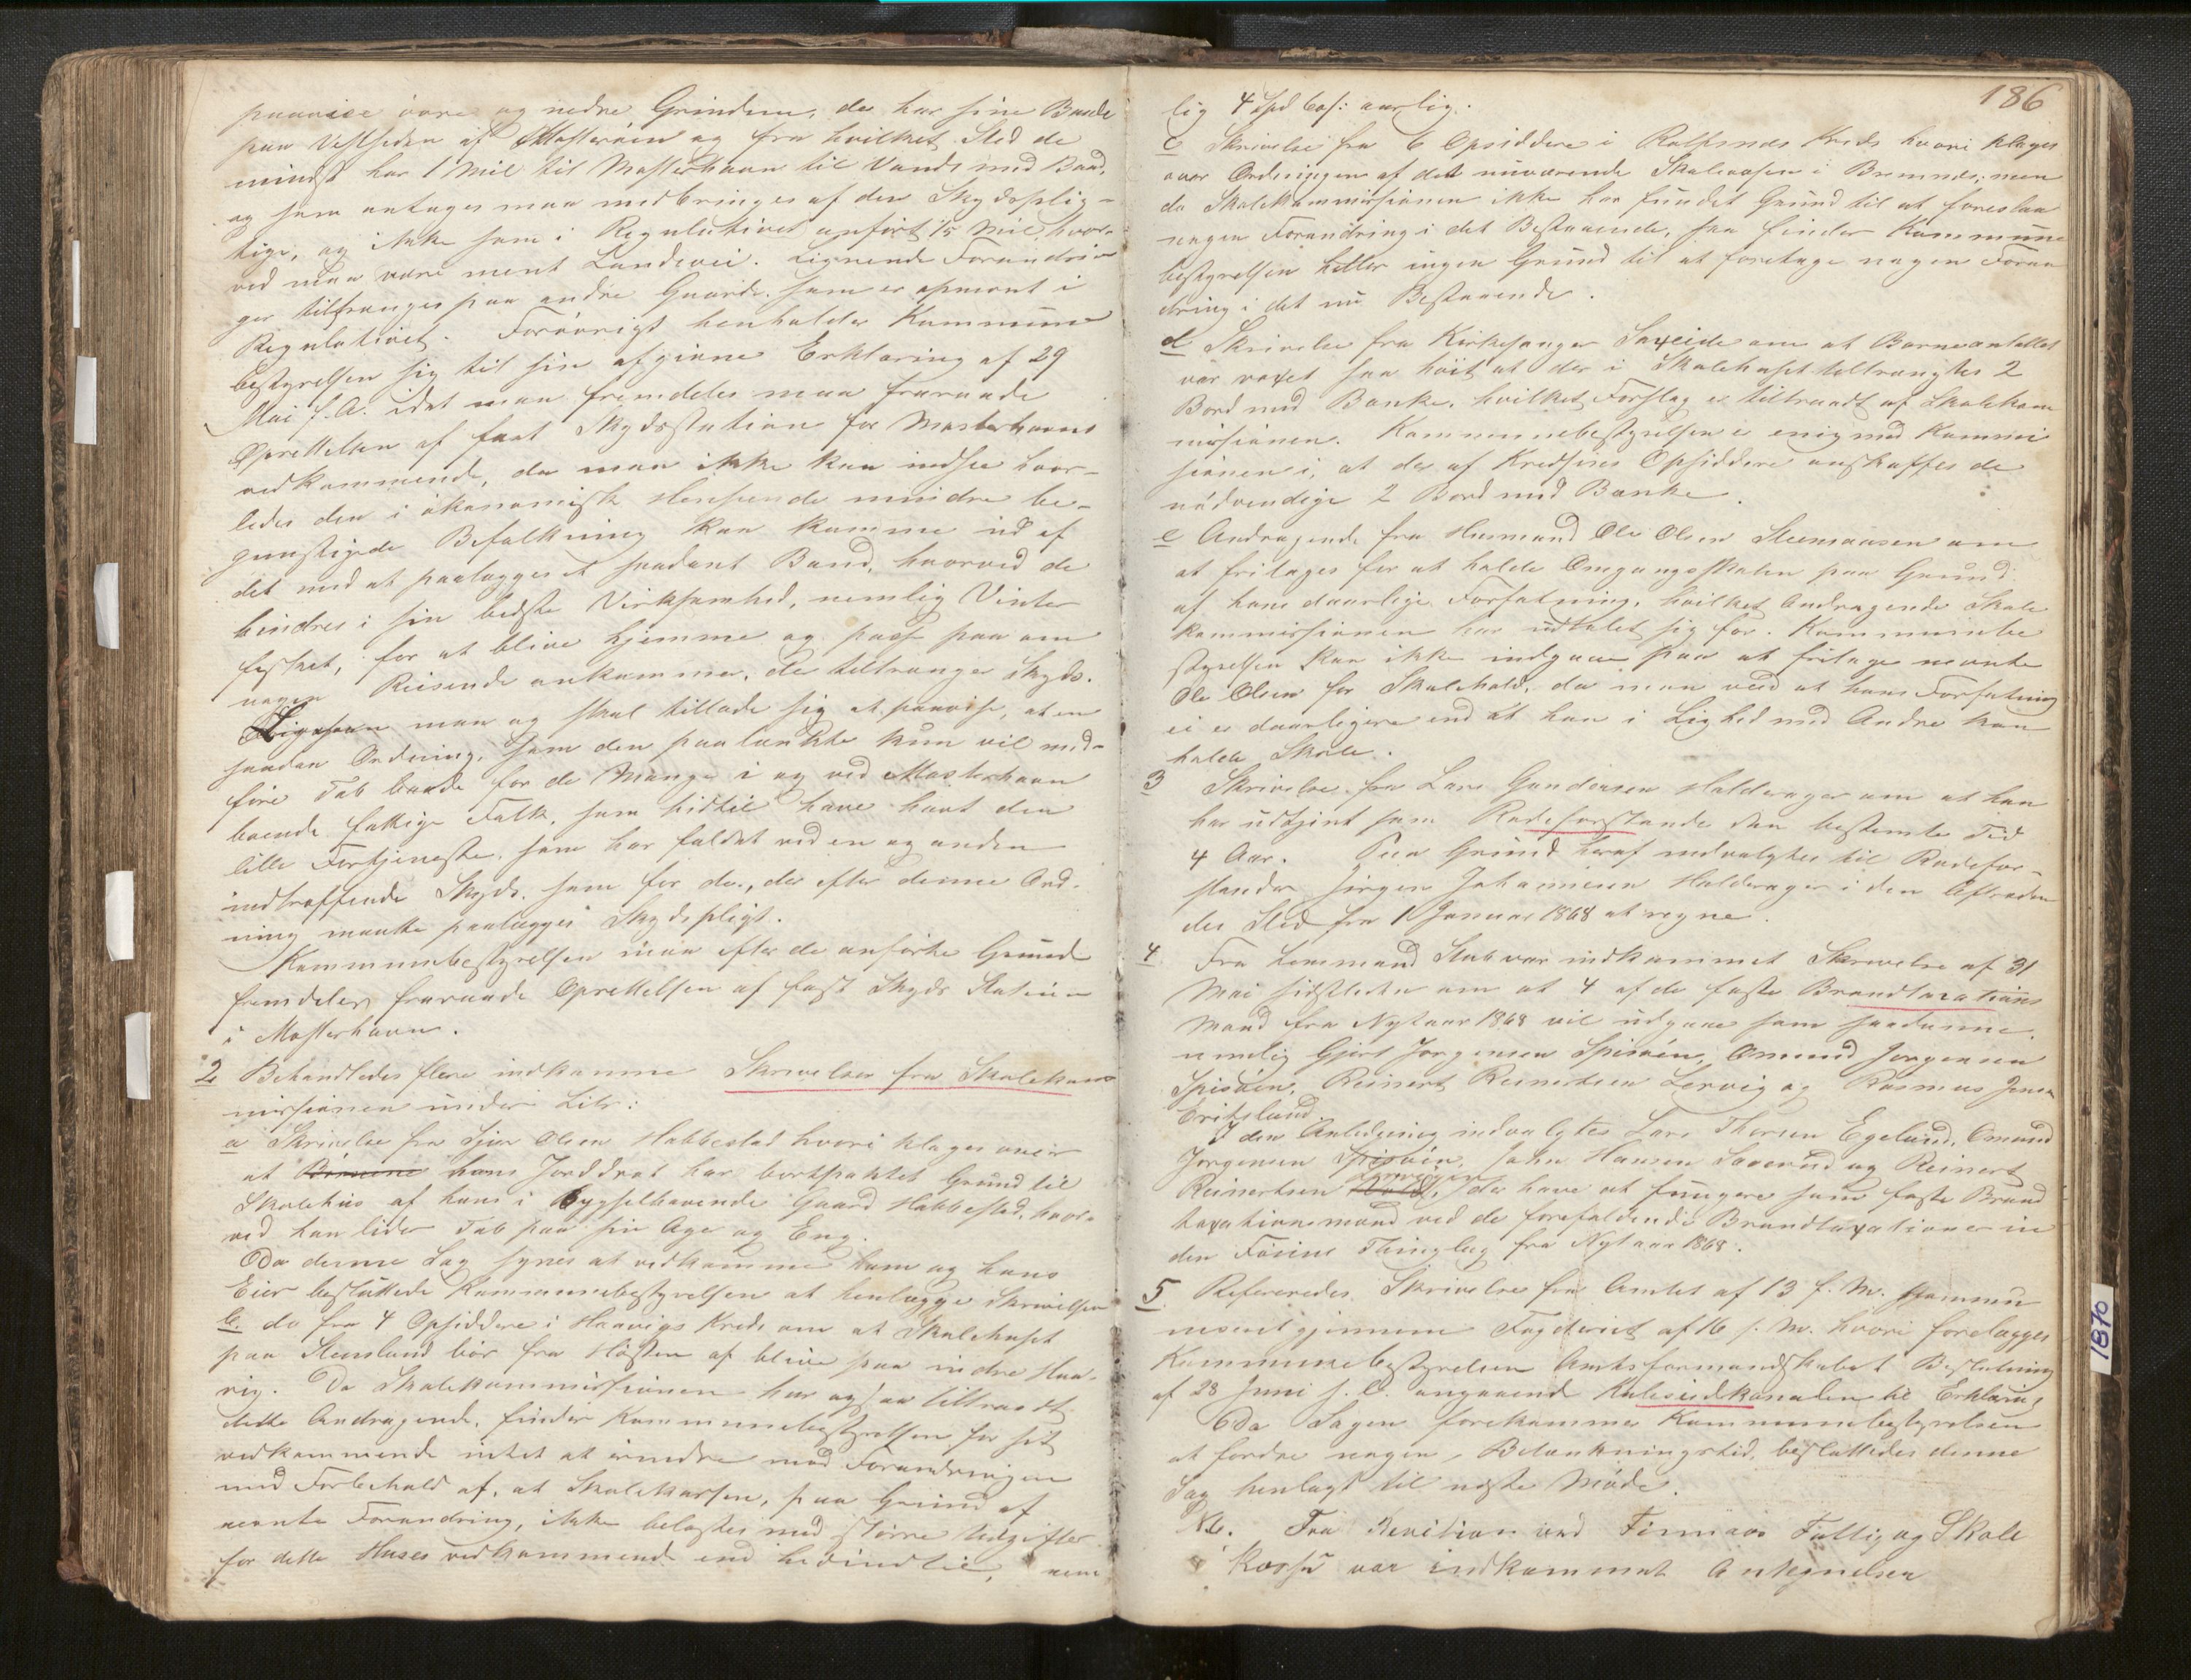 paavise övre og nedre Grinden, der har sine Baade
paa Vestsiden af Mosterøen og fra hvilket Sted de
mindst har 1 Miil til Mosterhavn til Vands med Baad,
og som antages maa medbringes af den Skydsplig-
tige, og ikke som i Regulativet anført 1/5 Mil, hvor-
ved maa være ment Landevei. Lignende Forandrin
ger tiltrænges paa andre Gaarde som er opnævnt i
Regulativet. Forövrigt henholder Kommune
bestyrelsen sig til sin afgivne Erklæring af 29
Mai f. A. idet man fremdeles maa fraraade
Oprettelsen af fast Skydsstation for Mosterhavns
vedkommende, da man ikke kan indsee hvor-
ledes den i økonomisk Henseende mindre be-
gunstigede Befolkning kan komme ud af
det med at paalægges et saadant Baand, hvorved de
hindres i sin bedste Virksomhed, nemlig Vinter
fisket, for at blive hjemme og passe paa om
nogen Reisende ankommer, der tiltrænger Skyds.
Ligesom man og skal tillade sig at paavise, at en
saadan Ordning, som den paatænkte kun vil med-
føre Tab baade for de Mange i og ved Mosterhavn
boende fattige Folk, som hidtil have havt den
lille Fortjeneste, som har faldet ved en og anden
indtræffende Skyds, som for dem, der efter denne Ord-
ning maatte paalægges Skydspligt.
Kommunebestyrelsen maa efter de anførte Grunde
fremdeles fraraade Oprettelsen af fast Skyds Station
i Mosterhavn.
2 Behandledes flere indkomne Skrivelser fra Skolekom
missionen under Litr:
a Skrivelse fra Sjur Olsen Habbestad hvori klages over
at hans Jorddrot har bortpaktet Grund til
Skolehus af hans i Bygselhavende Gaard Habbestad, hvor-
ved han lider Tab paa sin Ager og Eng.
Da denne Sag synes at vedkomme ham og hans
Eier besluttede Kommunebestyrelsen at henlægge Skrivelsen
b. do fra 4 Opsiddere i Haavigs Kreds om at Skolehuset
paa Steensland bör fra Høsten af blive paa indre Haa-
vig. Da Skolekommissionen har ogsaa tiltraadt
dette Andragende, finder Kommunebestyrelsen for sit
vedkommende intet at erindre mod Forandringen
med Forbehold af, at Skolekassen, paa Grund af
nævnte Forandring, ikke belastes med større Udgifter
for dette Huses vedkommende end hidindtil, nem
186
lig 4 Spd 60s: aarlig.
c Skrivelse fra 6 Opsiddere i Kreds hvori klages
over Ordningen af det nuværende Skolevæsen i Bremnes; men
da Skolekommissionen ikke har fundet Grund til at foreslaa
nogen Forandring i det Bestaaende, saa finder Kommune
bestyrelsen heller ingen Grund til at foretage nogen Foran
dring i det nu Bestaaende.
d Skrivelse fra Kirkesanger Saxeide om at Børneantallet
var voxet saa høit at der i Skolehuset tiltrængtes 2
Bord med Bænke, hvilket Forslag er tiltraadt af Skolekom
missionen. Kommunebestyrelsen er enig med Kommis
sionen i, at der af Kredsens Opsiddere anskaffes de
nödvendige 2 Bord med Bænke.
e Andragende fra Husmand Ole Olsen om
at fritages for at holde Omgangsskolen paa Grund
af hans daarlige Forfatning, hvilket Andragende Skole
kommissionen har udtalet sig for. Kommunebe
styrelsen kan ikke indgaae paa at fritage nævnte
Ole Olsen for Skolehold, da man veed at hans Forfatning
ei er daarligere end at han i Lighed med Andre kan
holde Skole.
3 Skrivelse fra Lars Gundersen Halderager om at han
har udtjent som Rodeforstander den bestemte Tid
4 Aar. Paa Grund heraf udvalgtes til Rodefor-
stander Jørgen Johannesen Halderager i den Aftræden
des Sted fra 1 Januar 1868 at regne.
4 Fra Lensmand Stub var indkommet Skrivelse af 31
Mai sidstleden om at 4 af de faste Brandtaxations
Mænd fra Nytaar 1868 vil udgaae som saadanne,
nemlig Gjert Jørgensen Spisøen, Omund Jørgensen
Spisøen, Reinert Reinertsen Lervig og Rasmus Jensen
Eritsland.
I den Anledning indvalgtes Lars Thorsen Egeland, Omund
Jørgensen Spisøen, John Hansen og Reinert
Reinertsen Lervigen, der have at fungere som faste Brand
taxationsmænd ved de forefaldende Brandtaxationer in
den Føiens Thinglag fra Nytaar 1868.
5 Refereredes Skrivelse fra Amtet af 13 f. M. kommun
neseret gjennem Fogderiet af 16 s. M. hvori forelægges
Kommunebestyrelsen Amtsformandskabets Beslutning
af 28 Juni s. A. angaaende Kulesundkanalen til Erklæring
Da Sagen forekommer Kommunebestyrelsen
at fordre nogen Betænkningstid, besluttedes denne
Sag henlagt til næste Møde.
N 6. Fra Revision ved Finnaas Fattig og Skole
Kasse var indkommet Antegnelser
1870